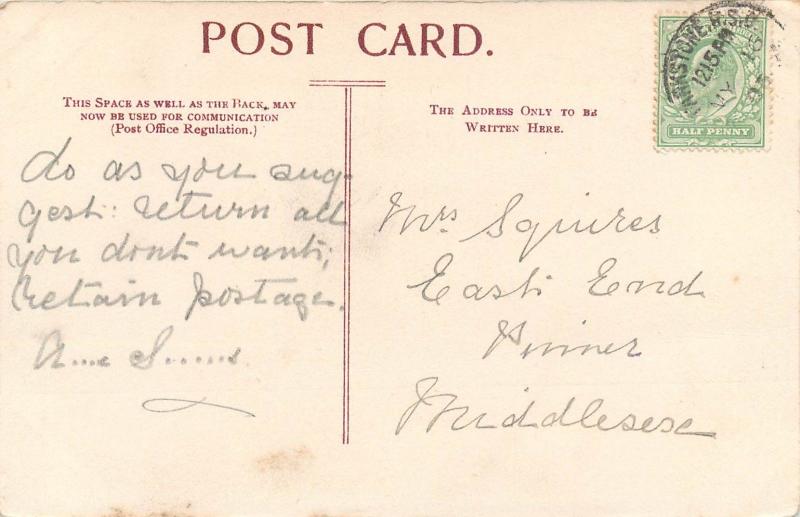 POST CARD.
THIS SPACE AS WELL AS THE BACK, MAY
NOW BE USED FOR COMMUNICATION
(Post Office Regulation.)
do as you sug-
gest: return all
you dont want;
retain postage.
THE ADDRESS ONLY TO BE
WRITTEN HERE.
Mrs Squires
East End
Pinner
Middlesex
12 15 PM
MY
HALF PENNY